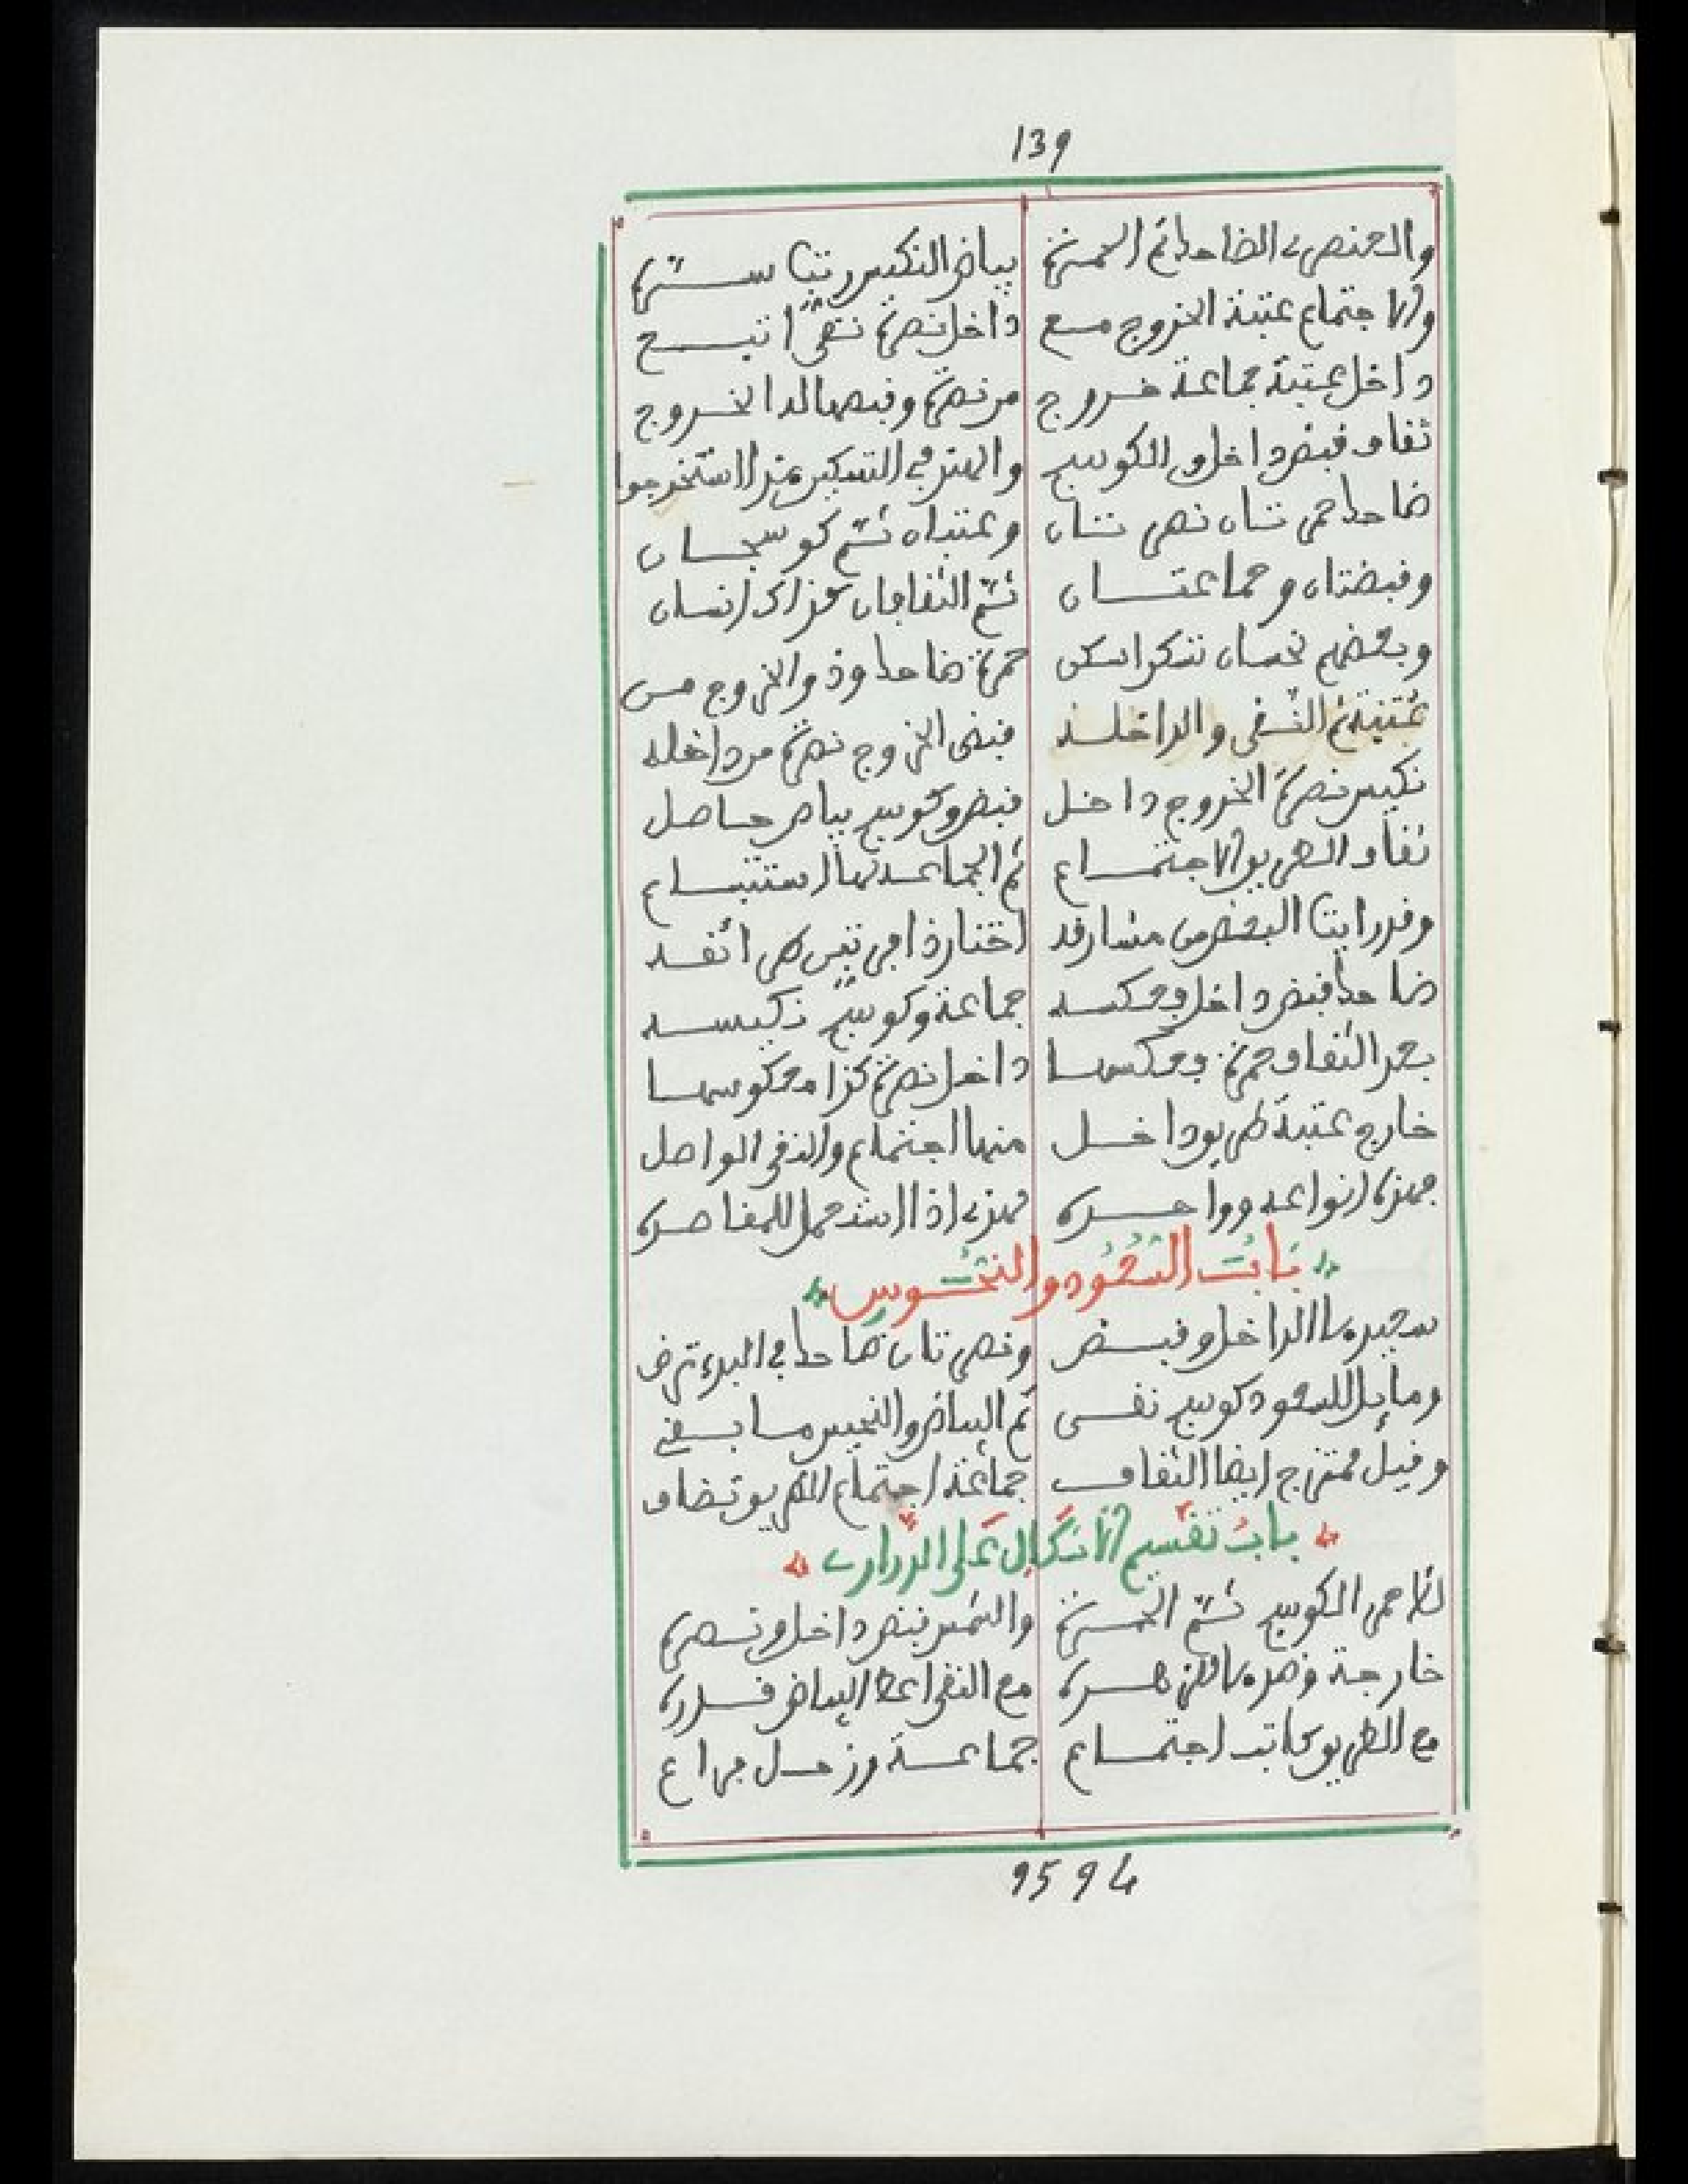 139
والعنصري الضاحك ثم الحمرة بياض النكيس رتبا ستره
والاجتماع عتبة الخروج مع داخل نصرة نقى اتبع
داخل عتبة جماعة خروج من نصرة وقبضها لدا الخروج
ثقاف قبض داخل والكوسج والمتزج التسكين عند استخرجوا
ضاحك حمرتان نصرتان وعتبتاه ثم كوسجان
وقبضتان وجماعتان ثم الثقافان
وبعضهم تسكن حمرة ضاحك وذو الخروج من
عتبة ثم النقي والداخلة قبض الخروج نصرة من داخله
نكيس نصرة الخروج داخل قبض وكوسج بياض حاصل
ثقاف الطريق والاجتماع ثم الجماعة لها استتباع
وقد رأيت البعض من مشارقه اختار ذا
ضاحك قبض داخل وعكسه جماعة وكوسج نكيسه
بعد الثقاف حمرة وعكسها داخل نصرة كذا معكوسها
خارج عتبة طريق وداخل منها اجتماع والنقي الواصل
فهذه انواعه وواحده فهذي اذا
باب السعود والنحوس
سعيدها الداخل وقبض ونصرتان ضاحك في البدء ترض
ومايل للسعود كوسج نقي ثم البياض والنحيس ما بقي
وقيل ممتزج ايضا الثقاف جماعة اجتماع الطريق تضاف
باب تقسيم الاشكال على الدراري
للأحمر الكوسج ثم الحمرة والشمس قبض داخل ونصرة
خارجة وضدها للزهرة مع النقي اعط البياض قمره
مع الطريق كاتب اجتماع جماعة وزحل
9594